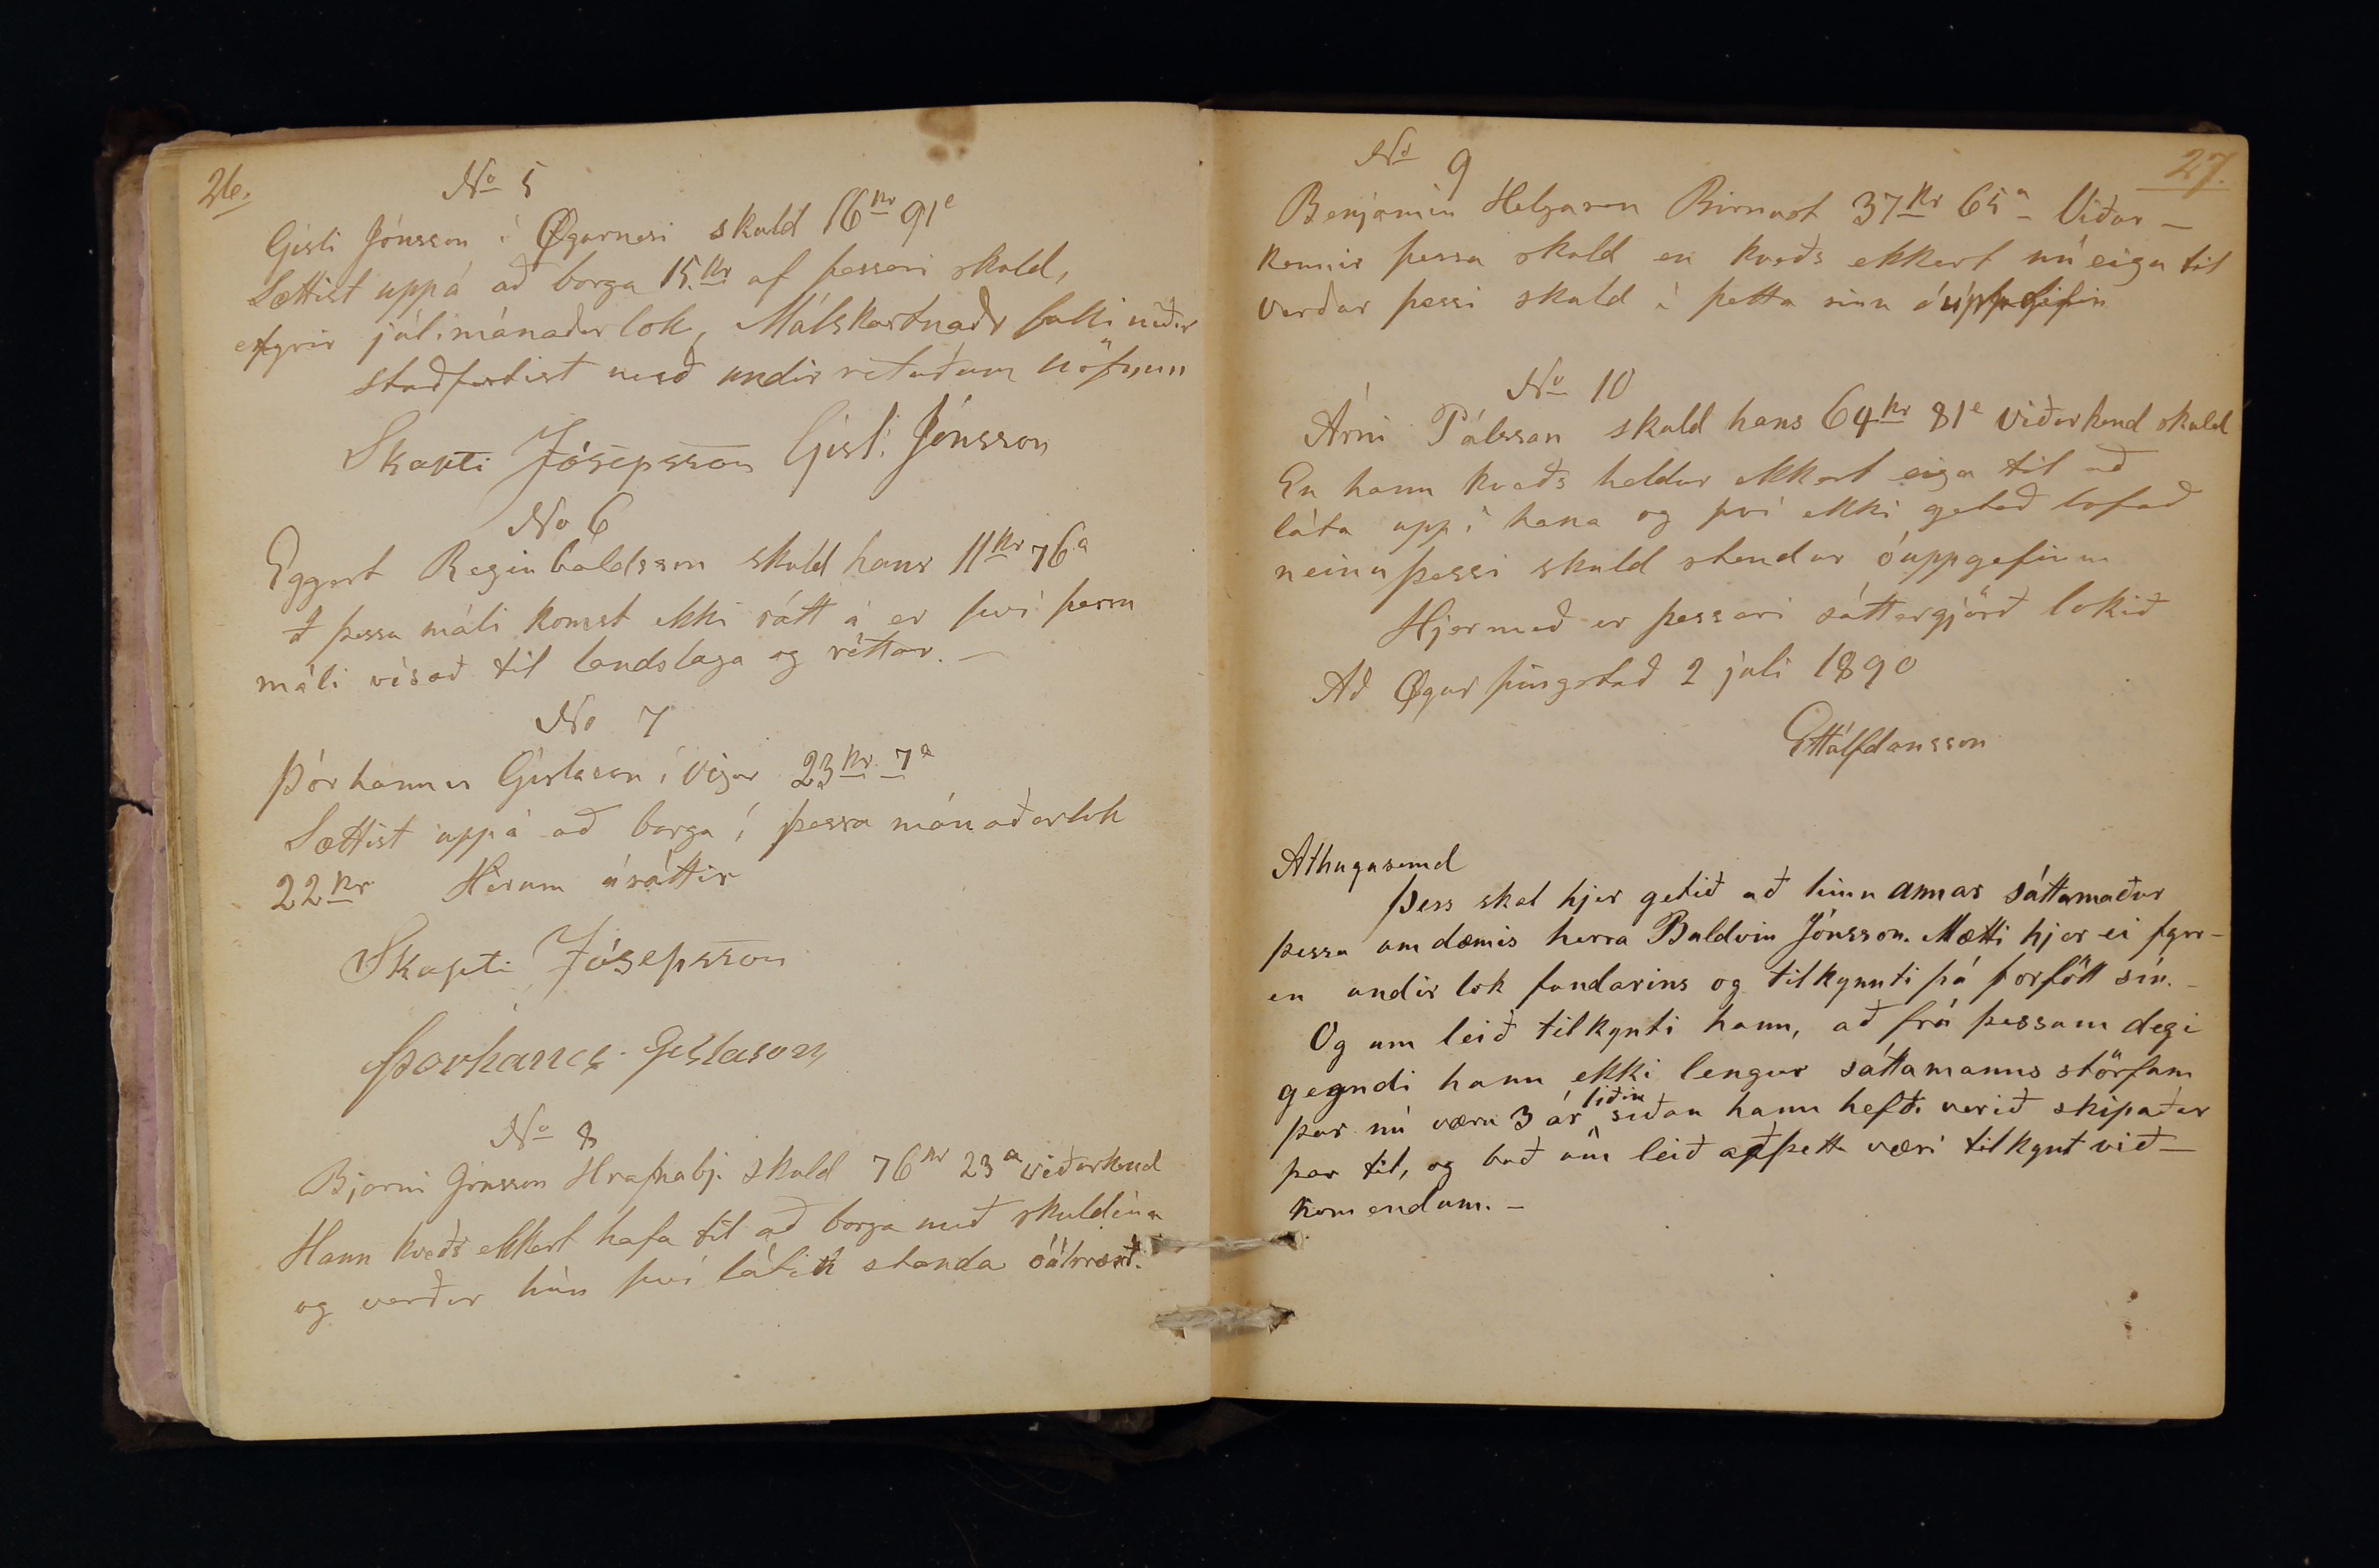 26.
No 5
Gísli Jónsson í Øgurnesi skuld 16kr 91e
Sættist uppá að borga 15.kr af þessari skuld,
fyrir júlimánaðar lok, Málskostnaðr falli niðr
staðfestist með undir rituðum nöfnum
Skapti Jósepsson Gísli Jónsson
No 6
Eggert Reginbaldsson skuld hans 11kr 76a
Í þessu máli komst ekki sátt á er því þessu
máli vísað til landslaga og réttar. —
No 7
Þórhannes Gíslason í Vigur 23kr 7a
Sættist uppá að borga í þessa mánaðarlok
22kr Hérum ásáttir
Skapti Jósepsson
Þorhanes Gíslason
No 8
Bjarni Jónsson Hrafnabj. skuld 76kr 23a viðurkend
Hann kveðs ekkert hafa til að borga með skuldina
og verður hún því látin standa
27.
No 9
Benjamín Helgason Birnust 37kr 65a Viður—
kennir þessa skuld en kveðs ekkert nú eiga til
verður þessi skuld í þetta sinn óuppgefin
No 10
Árni Pálsson skuld hans 64kr 81e viðurkend skuld
En hann kveðs heldur ekkert eiga til að
láta uppí hana og því ekki getað lofað
neinu þessi skuld stendur óuppgefinn
Hjermeð er þessari sáttargjörð lokið
Að Øgur þingstað 2 júli 1890
EHálfdansson
Athugasemd
Þess skal hjer getið að hinn annar sáttamaður
þessa umdæmis herra Baldvin Jónsson. Mætti hjer ei fyrr-
en undir lok fundarins og tilkynnti þá forföll sín. -
Og um leið tilkynti hann, að frá þessum degi
gegndi hann ekki lengur sáttamanns störfum
þar nú væru 3 ár liðin síðan hann hefði verið skipaður
þar til, og bað um leið að þetta væri tilkynt við—
komendum. -